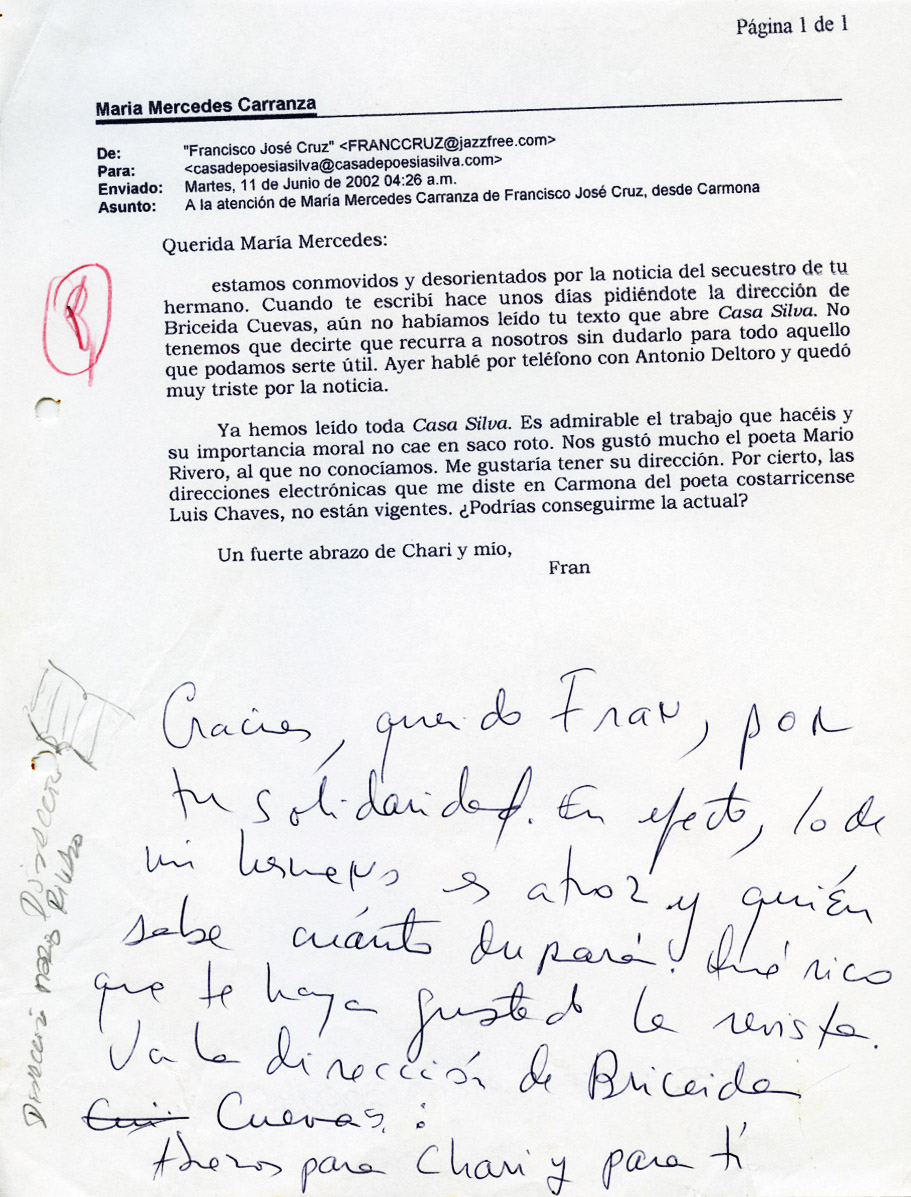 Página 1 de 1
Maria Mercedes Carranza
De: "Francisco José Cruz" <FRANCCRUZ@jazzfree.com>
Para: <casadepoesiasilva@casadepoesiasilva.com>
Enviado: Martes, 11 de Junio de 2002 04:26 a.m.
Asunto: A la atención de María Mercedes Carranza de Francisco José Cruz, desde Carmona
Querida María Mercedes:
estamos conmovidos y desorientados por la noticia del secuestro de tu
hermano. Cuando te escribí hace unos días pidiéndote la dirección de
Briceida Cuevas, aún no habíamos leído tu texto que abre Casa Silva. No
tenemos que decirte que recurra a nosotros sin dudarlo para todo aquello
que podamos serte útil. Ayer hablé por teléfono con Antonio Deltoro y quedó
muy triste por la noticia.
Ya hemos leído toda Casa Silva. Es admirable el trabajo que hacéis y
su importancia moral no cae en saco roto. Nos gustó mucho el poeta Mario
Rivero, al que no conocíamos. Me gustaría tener su dirección. Por cierto, las
direcciones electrónicas que me diste en Carmona del poeta costarricense
Luis Chaves, no están vigentes. ¿Podrías conseguirme la actual?
Un fuerte abrazo de Chari y mío,
Fran
R
Gracias, querido Fran, por
tu solidaridad. En efecto, lo de
mi hermano es atroz y quién
sabe cuánto durará! Qué rico
que te haya gustado la revista.
Va la dirección de Briceida
Cuevas:
Abrazos para Chari y para tí
Dirección
Dirección Mario Rivero